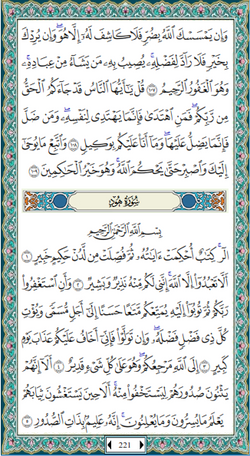 وَإِن يَمْسَسْكَ اللَّهُ بِضُرٍّ فَلَا كَاشِفَ لَهُ إِلَّا هُوَ وَإِن يُرِدْكَ
بِخَيْرٍ فَلَا رَادَّ لِفَضْلِهِ يُصِيبُ بِهِ مَن يَشَاءُ مِنْ عِبَادِهِ
وَهُوَ الْغَفُورُ الرَّحِيمُ ١٠٧ قُلْ يَا أَيُّهَا النَّاسُ قَدْ جَاءَكُمُ الْحَقُّ
مِن رَّبِّكُمْ فَمَنِ اهْتَدَى فَإِنَّمَا يَهْتَدِي لِنَفْسِهِ وَمَن ضَلَّ
فَإِنَّمَا يَضِلُّ عَلَيْهَا وَمَا أَنَا عَلَيْكُم بِوَكِيلٍ ١٠٨ وَاتَّبِعْ مَا يُوحَى
إِلَيْكَ وَاصْبِرْ حَتَّى يَحْكُمَ اللَّهُ وَهُوَ خَيْرُ الْحَاكِمِينَ ١٠٩
سُورَةُ هُودٍ
بِسْمِ اللَّهِ الرَّحْمَنِ الرَّحِيمِ
الر كِتَابٌ أُحْكِمَتْ آيَاتُهُ ثُمَّ فُصِّلَتْ مِن لَّدُنْ حَكِيمٍ خَبِيرٍ ١
أَلَّا تَعْبُدُوا إِلَّا اللَّهَ إِنَّنِي لَكُم مِّنْهُ نَذِيرٌ وَبَشِيرٌ ٢ وَأَنِ اسْتَغْفِرُوا
رَبَّكُمْ ثُمَّ تُوبُوا إِلَيْهِ يُمَتِّعْكُم مَّتَاعًا حَسَنًا إِلَى أَجَلٍ مُّسَمًّى وَيُؤْتِ
كُلَّ ذِي فَضْلٍ فَضْلَهُ وَإِن تَوَلَّوْا فَإِنِّي أَخَافُ عَلَيْكُمْ عَذَابَ يَوْمٍ
كَبِيرٍ ٣ إِلَى اللَّهِ مَرْجِعُكُمْ وَهُوَ عَلَى كُلِّ شَيْءٍ قَدِيرٌ ٤ أَلَا إِنَّهُمْ
يَثْنُونَ صُدُورَهُمْ لِيَسْتَخْفُوا مِنْهُ أَلَا حِينَ يَسْتَغْشُونَ ثِيَابَهُمْ
يَعْلَمُ مَا يُسِرُّونَ وَمَا يُعْلِنُونَ إِنَّهُ عَلِيمٌ بِذَاتِ الصُّدُورِ ٥
221